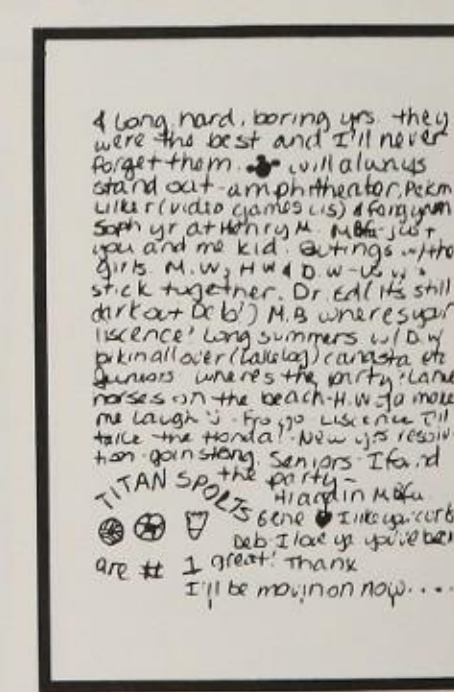 4 Long, hard, boring yrs. they
were the best and I'll never
forget them. will always
stand out-amphitheator, Pekm
(video games us) 4
Soph yr at Henry M. MBfu-just
you and me kid. Outings w/the
girls. M.W, HW & D.W-
stick together. Dr. Ed (its still
dirkout Deb!) M.B wheresyour
liscence! Long summers w/ D.W
bikinallover (Lakelag) canasta etc
Juniors wheres the party? Lane
horses on the beach-H.W-Ya make
me laugh Liscence I'll
take the Honda! New yrs resolu-
tion-goin steng. Seniors-I found
the party-
TITAN SPORTS
in MBfu
Gene I like your curls
Deb-I love ya you've been
are # 1 great! Thanx
I'll be movin on now....